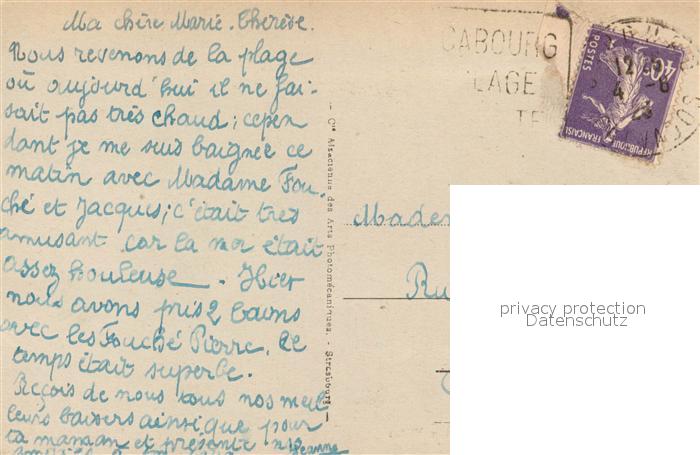 Ma chère Marie-Thérèse.
Nous revenons de la plage
où aujourd'hui il ne fai-
sait pas très chaud; cepen
dant je me suis baignée ce
matin avec Madame Fou-
ché et Jacques; c'était très
amusant car la mer était
assez houleuse. Hier
nous avons pris 2 bains
avec les Fouché Pierre. Le
temps était superbe.
Reçois de nous tous nos meil
leurs baisers ainsi que pour
ta maman et présente nos
Jeanne
Cie Alsacienne des Arts Photomécaniques. - Strasbourg
CABOURG
PLAGE
POSTES
40c
REPUBLIQUE FRANÇAISE
12
4 - 8
Madem
Ru
privacy protection
Datenschutz